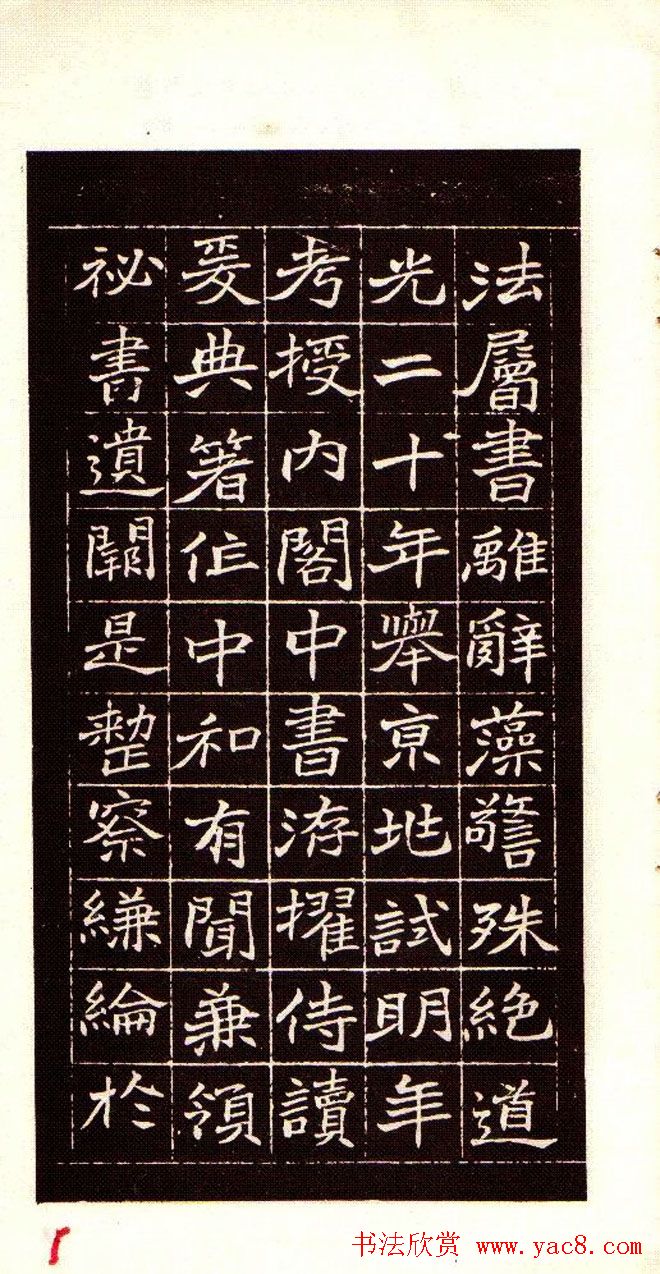 法屬書離辭藻警殊絶道
光二十年舉京兆試明年
考授内閣中書洊擢侍讀
爰典箸作中和有聞兼領
祕書遺闕是整察縑綸於
书法欣赏 www.yac8.com